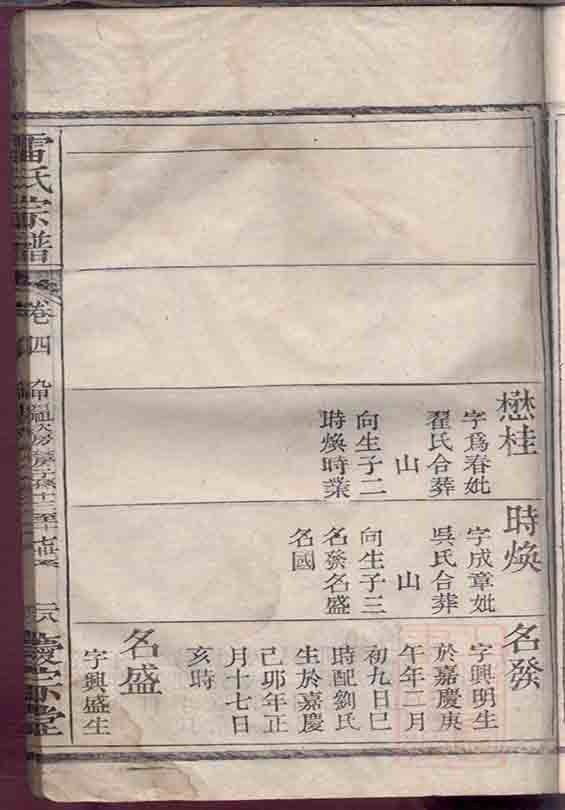 懋桂
字爲春妣
翟氏合葬
山
向生子二
時煥時業
時煥
字成章妣
吳氏合葬
山
向生子三
名發名盛
名國
名發
字興明生
於嘉慶庚
午年二月
初九日巳
時配劉氏
生於嘉慶
己卯年正
月十七日
亥時
名盛
字興盛生
雷氏宗譜
卷四